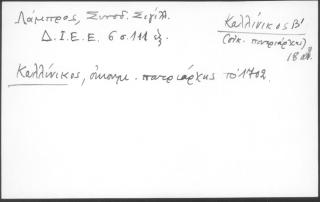 Λάμπρος, Συνοδ. Σιγίλλ.
Δ.Ι.Ε.Ε. 6 σ. 111 ἑξ.
Καλλίνικος Β'
(οἰκ. πατριάρχης)
18 αἰ.
Καλλίνικος, οἰκουμ. πατριάρχης τὸ 1702.